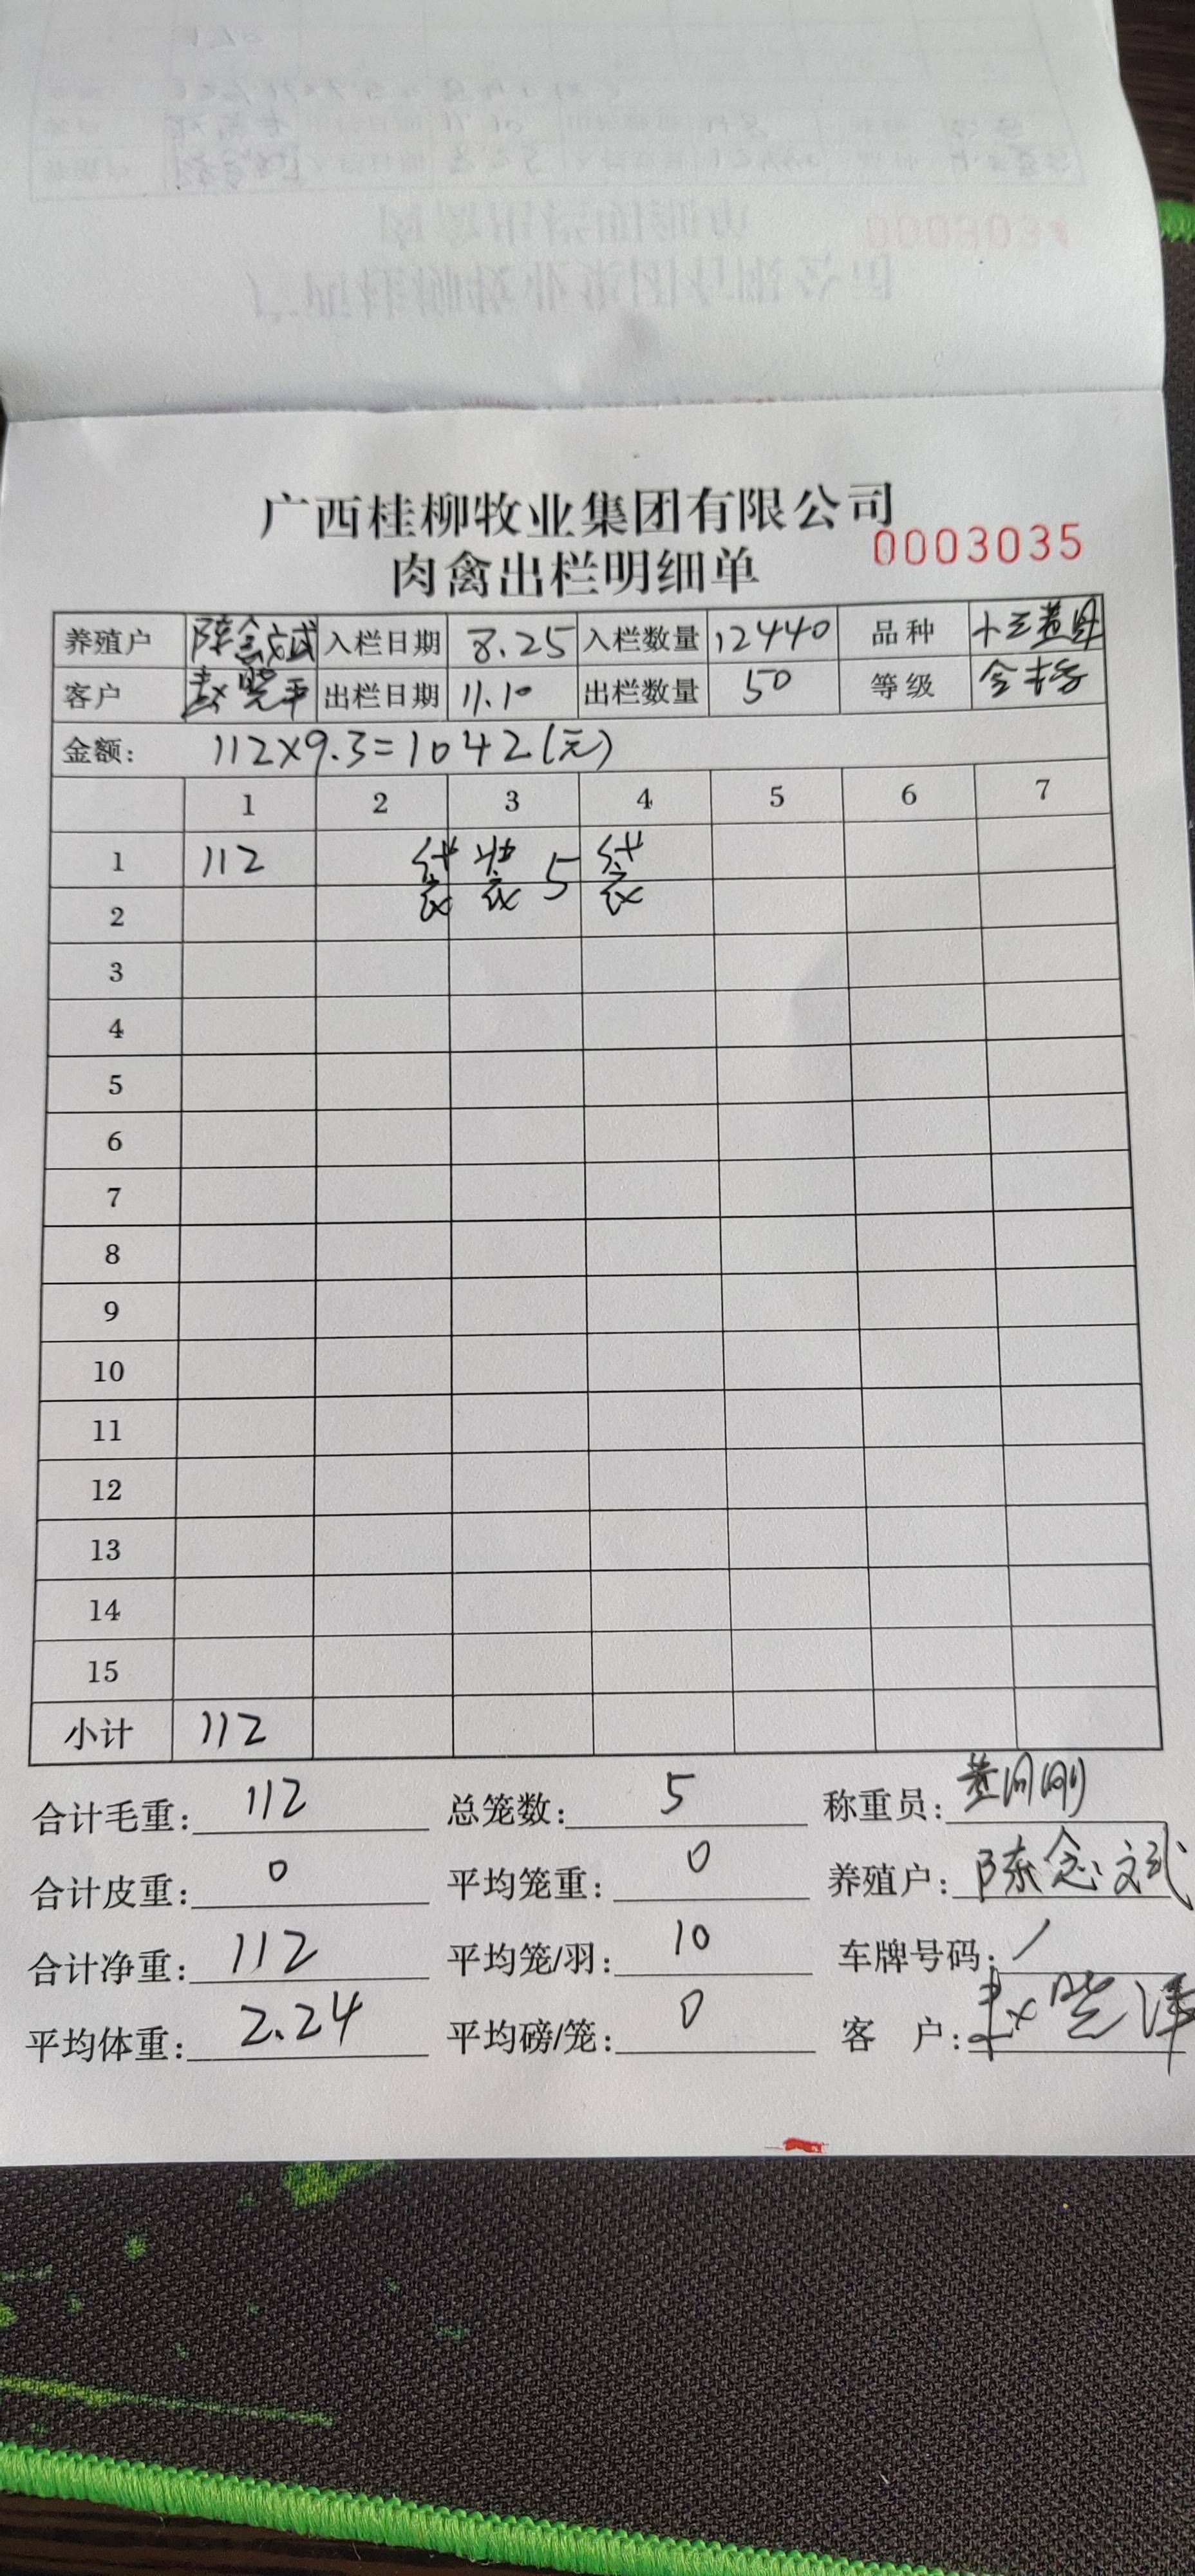 广西桂柳牧业集团有限公司
肉禽出栏明细单 0003035
养殖户 陈念斌 入栏日期 8.25 入栏数量 12440 品种
客户 赵晓 出栏日期 11.10 出栏数量 50 等级
金额: 112×9.3=1042(元)
1 2 3 4 5 6 7
1 112 5
2
3
4
5
6
7
8
9
10
11
12
13
14
15
小计 112
合计毛重: 112 总笼数: 5 称重员:
合计皮重: 0 平均笼重: 0 养殖户: 陈念斌
合计净重: 112 平均笼/羽: 10 车牌号码: /
平均体重: 2.24 平均磅/笼: 0 客 户: 赵晓